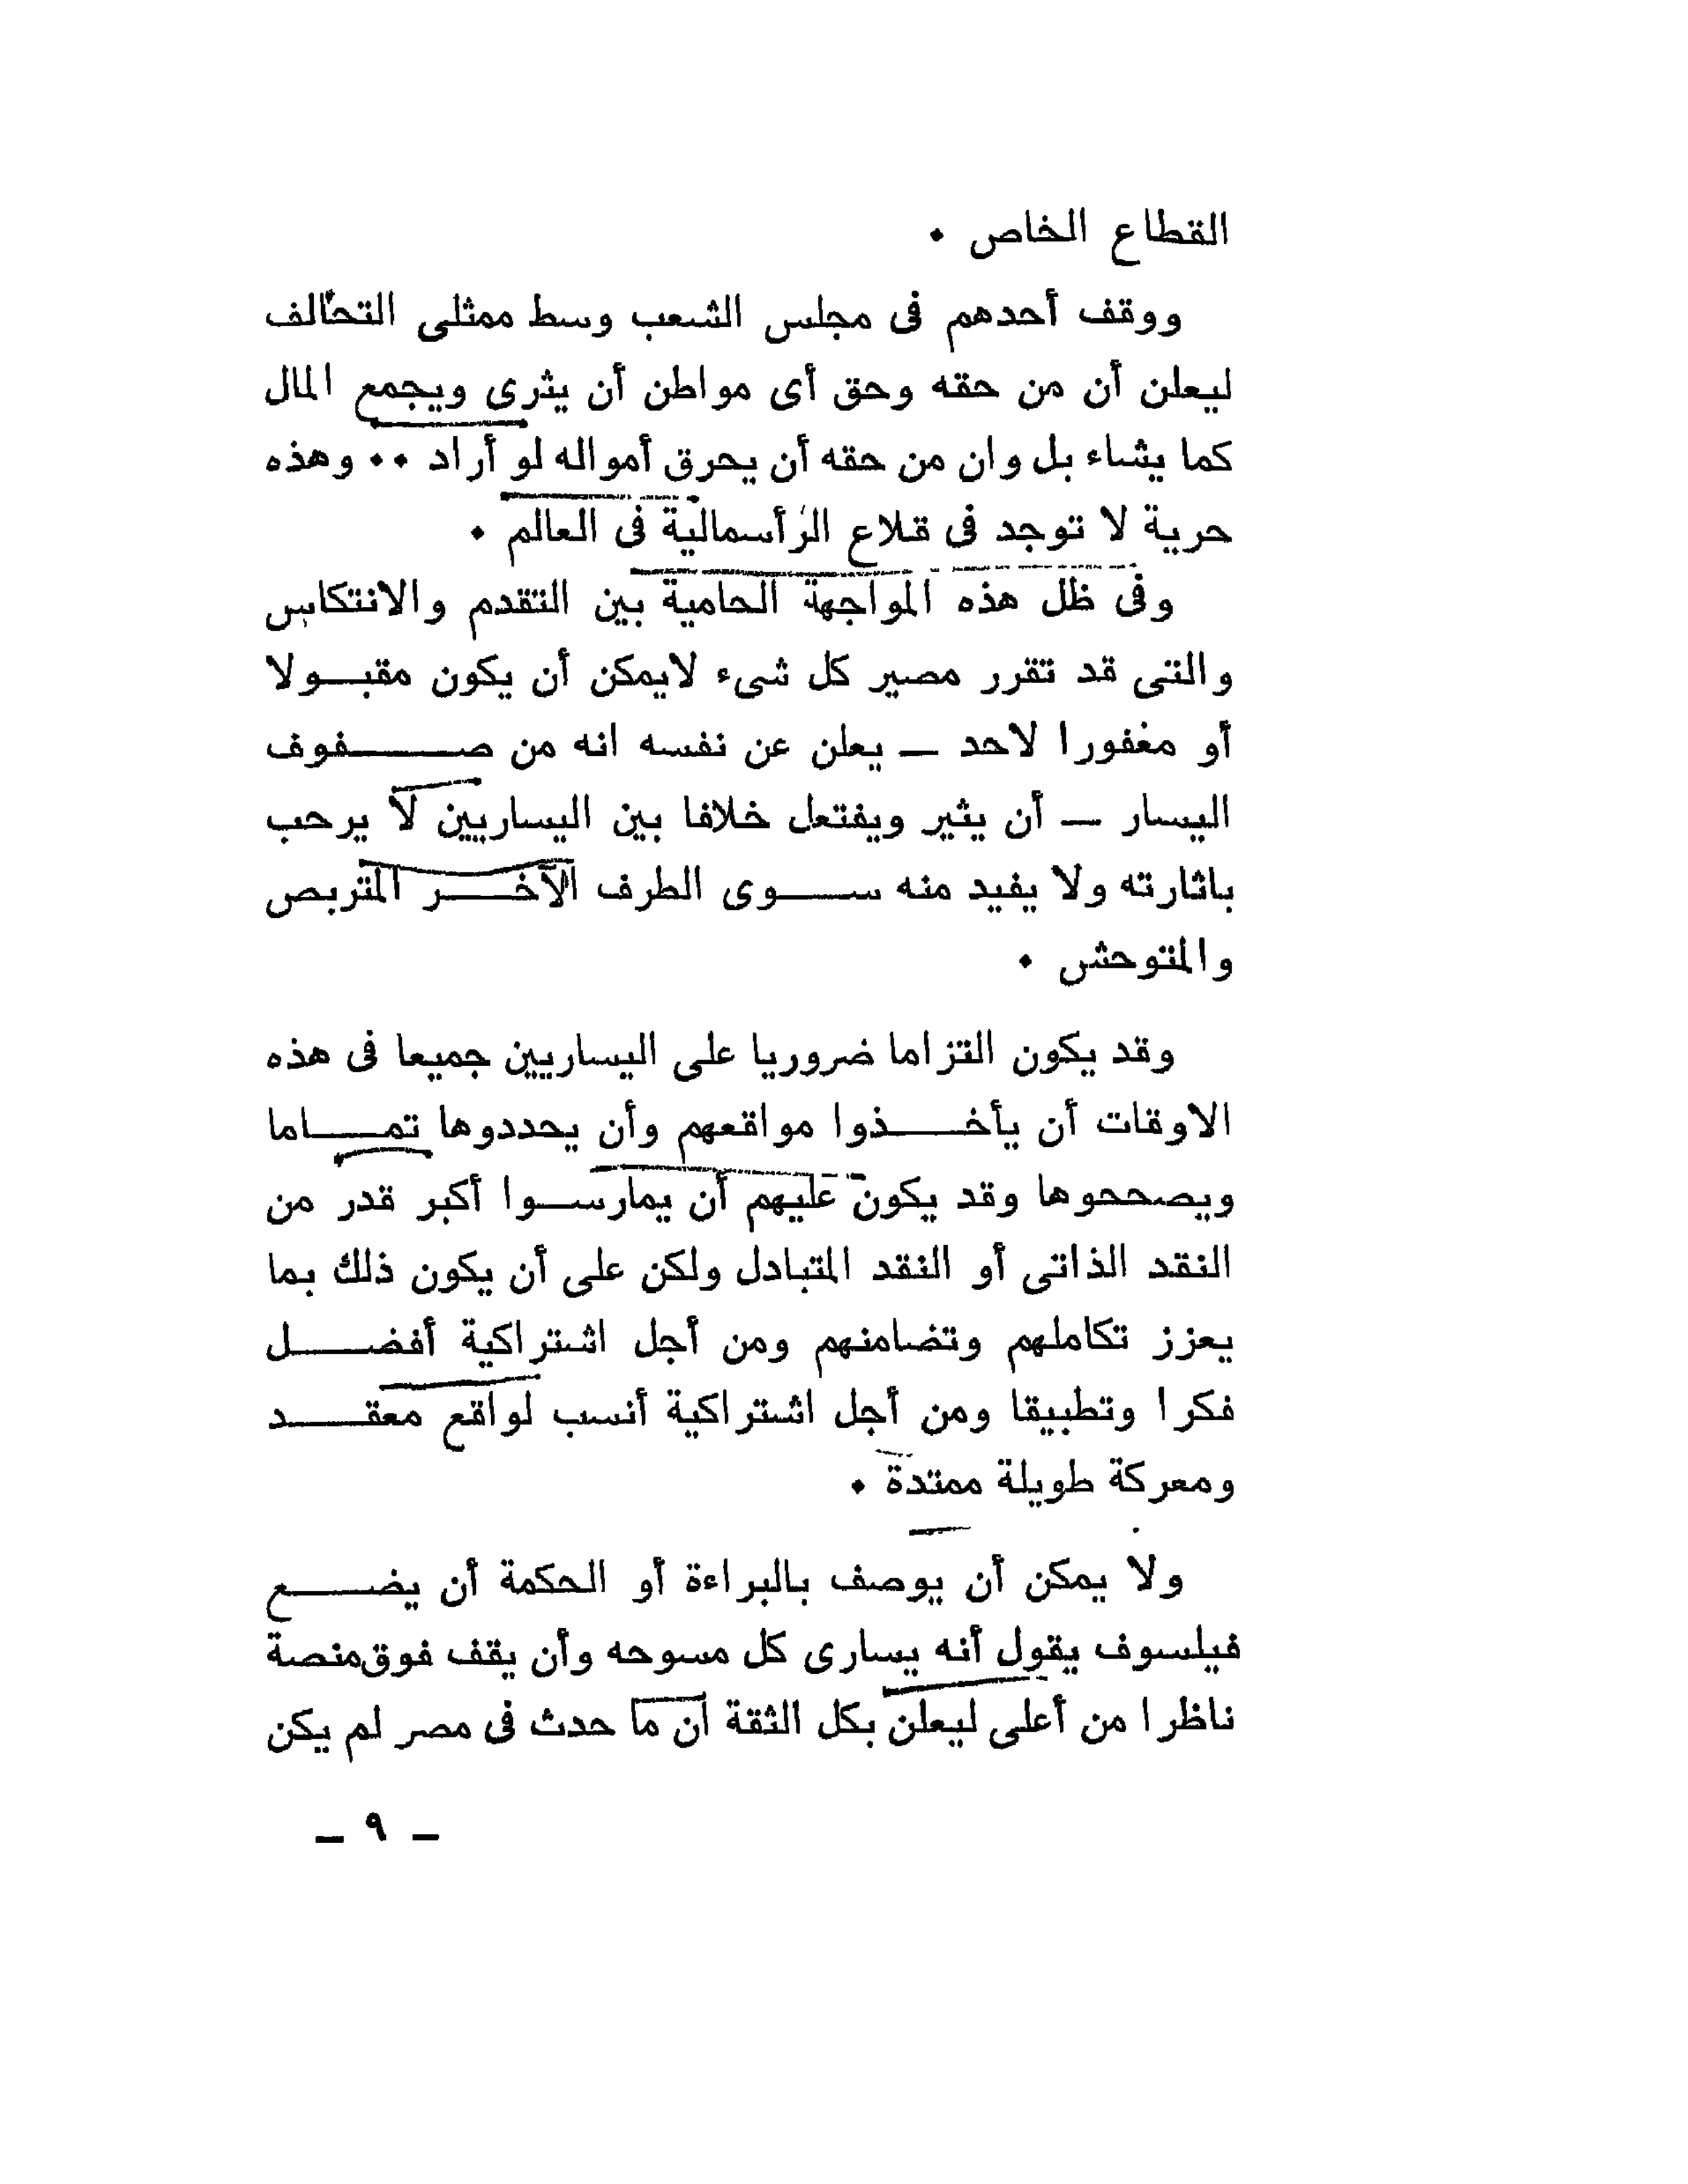 القطاع الخاص .
ووقف أحدهم فى مجلس الشعب وسط ممثلى التحالف
ليعلن أن من حقه وحق أى مواطن أن يثرى ويجمع المال
كما يشاء بل وان من حقه أن يحرق أمواله لو أراد .. وهذه
حرية لا توجد فى قلاع الرأسمالية فى العالم .
وفى ظل هذه المواجهة الحامية بين التقدم والانتكاس
والتى قد تقرر مصير كل شىء لايمكن أن يكون مقبـولا
أو مغفورا لاحد ــ يعلن عن نفسه انه من صـــفوف
اليسار ــ أن يثير ويفتعل خلافا بين اليساريين لا يرحب
باثارته ولا يفيد منه ســوى الطرف الآخـــر المتربص
والمتوحش .
وقد يكون التزاما ضروريا على اليساريين جميعا فى هذه
الاوقات أن يأخـــذوا مواقعهم وأن يحددوها تمــاما
ويصححوها وقد يكون عليهم أن يمارسـوا أكبر قدر من
النقد الذاتى أو النقد المتبادل ولكن على أن يكون ذلك بما
يعزز تكاملهم وتضامنهم ومن أجل اشتراكية أفضــل
فكرا وتطبيقا ومن أجل اشتراكية أنسب لواقع معقــد
ومعركة طويلة ممتدة .
ولا يمكن أن يوصف بالبراءة أو الحكمة أن يضـــع
فيلسوف يقول أنه يسارى كل مسوحه وأن يقف فوق منصة
ناظرا من أعلى ليعلن بكل الثقة ان ما حدث فى مصر لم يكن
ــ ٩ ــ